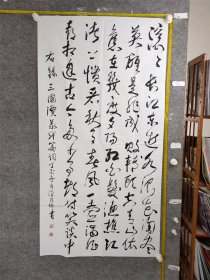 滚〻长江东逝水浪花淘尽
英雄是非成败转头空青山依
旧在几度夕阳红白发渔樵江
渚上惯看秋月春风一壶浊酒
喜相逢古今多少事都付笑谈中
右录三国演义开篇词 书